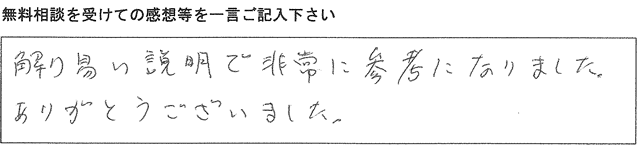 無料相談を受けての感想等を一言ご記入下さい
解り易い説明で非常に参考になりました。
ありがとうございました。